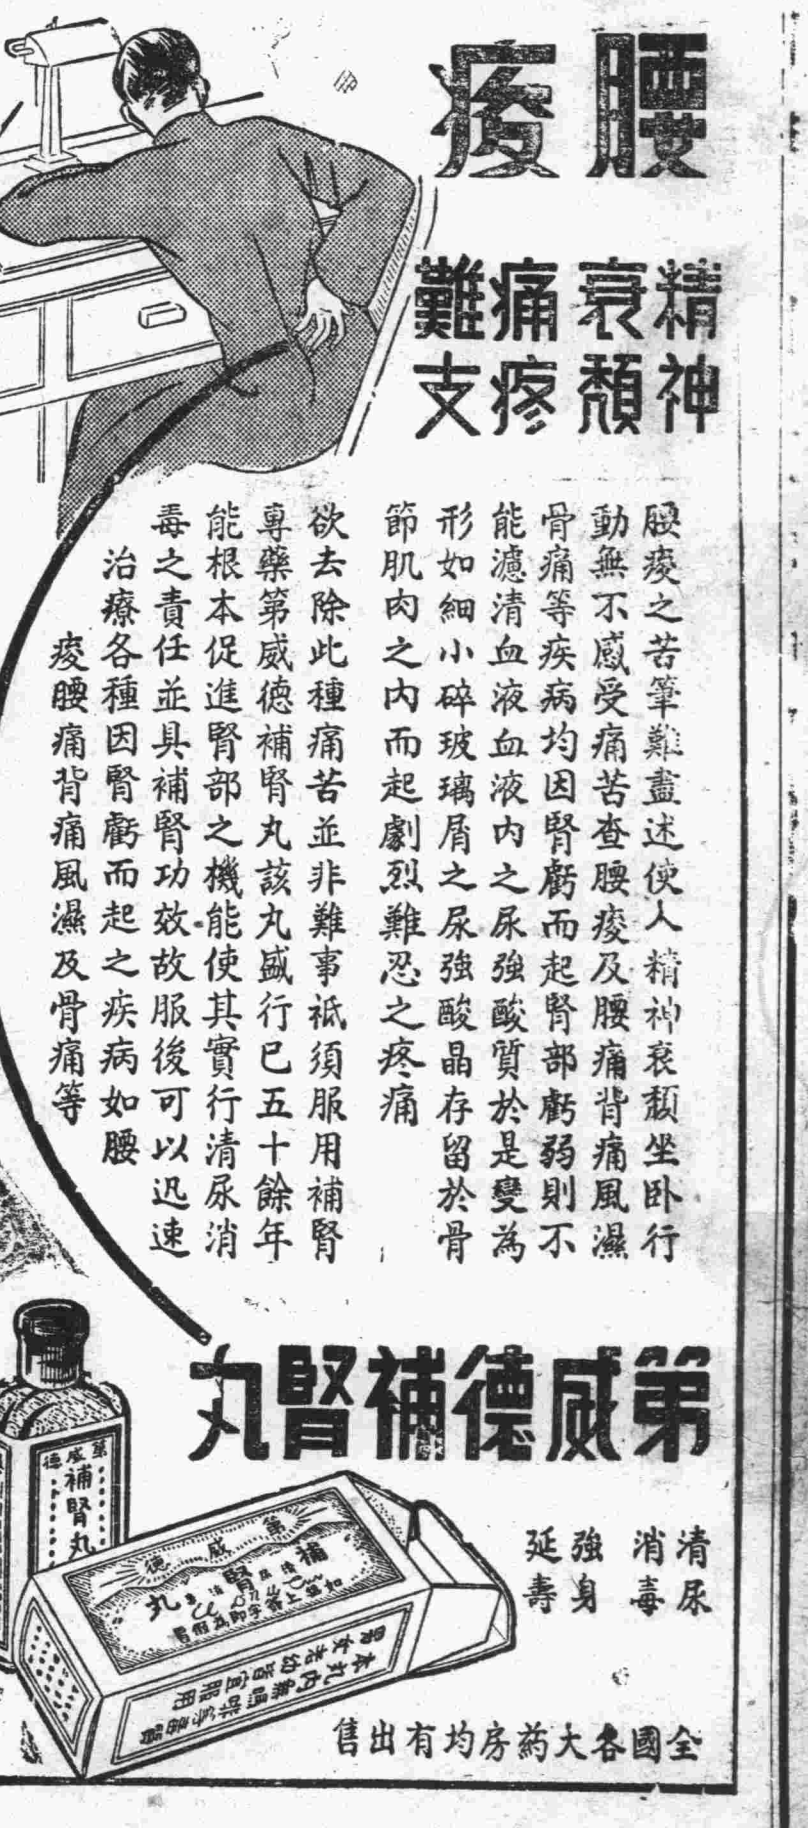 腰痠
精神
衰頹
痛疼
難支
腰痠之苦筆難盡述使人精神衰頹坐卧行
動無不感受痛苦查腰痠及腰痛背痛風濕
骨痛等疾病均因腎虧而起腎部虧弱則不
能濾清血液血液內之尿強酸質於是變為
形如細小碎玻璃屑之尿強酸晶存留於骨
節肌肉之內而起劇烈難忍之疼痛
欲去除此種痛苦並非難事祗須服用補腎
專藥第威德補腎丸該丸盛行已五十餘年
能根本促進腎部之機能使其實行清尿消
毒之責任並具補腎功效故服後可以迅速
治療各種因腎虧而起之疾病如腰
痠腰痛背痛風濕及骨痛等
第威德補腎丸
清尿
消毒
強身
延壽
第威德
補腎丸
第威德
補腎丸
本丸內無嗎啡等毒質
男女老幼皆宜服用
全國各大葯房均有出售